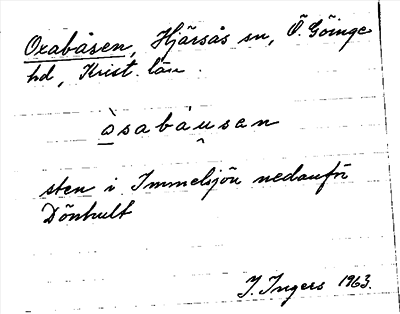 Oxabåsen, Hjärsås sn, Ö. Göinge
hd, Krist. län.
òsabáusen
sten i Immelsjön nedanför
Dönhult
I. Ingers 1963.